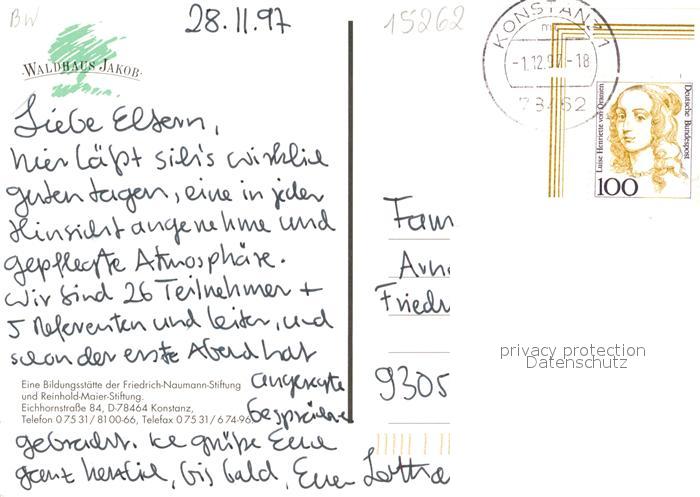 BW
28.11.97
15262
WALDHAUS JAKOB
KONSTANZ 1
-1.12.97-18
78462
Luise Henriette von Oranien
Deutsche Bundespost
100
Liebe Eltern,
hier läßt sich's wirklich
guten tagen, eine in jeder
Hinsicht angenehme und
gepflegte Atmosphäre.
Wir sind 26 Teilnehmer +
5 Referenten und Leiter, und
schon der erste Abend hat
angeregte
Gespräche
gebracht. Ich grüße Euch
ganz herzlich, bis bald, Euer Lotha
Eine Bildungsstätte der Friedrich-Naumann-Stiftung
und Reinhold-Maier-Stiftung.
Eichhornstraße 84, D-78464 Konstanz,
Telefon 0 75 31/ 8100-66, Telefax 0 75 31/ 6 74-96
Fam
Arn
Friedr
9305
privacy protection
Datenschutz